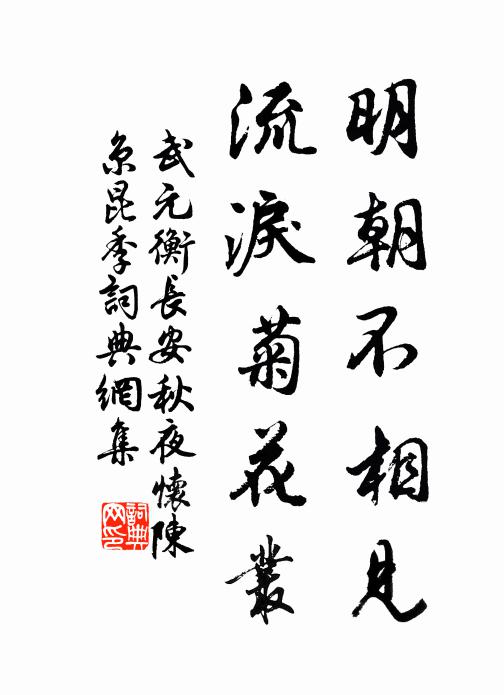 明朝不相見
流淚菊花叢
武元衡長安秋夜懷陳
京昆季詞典網集
詞典网印